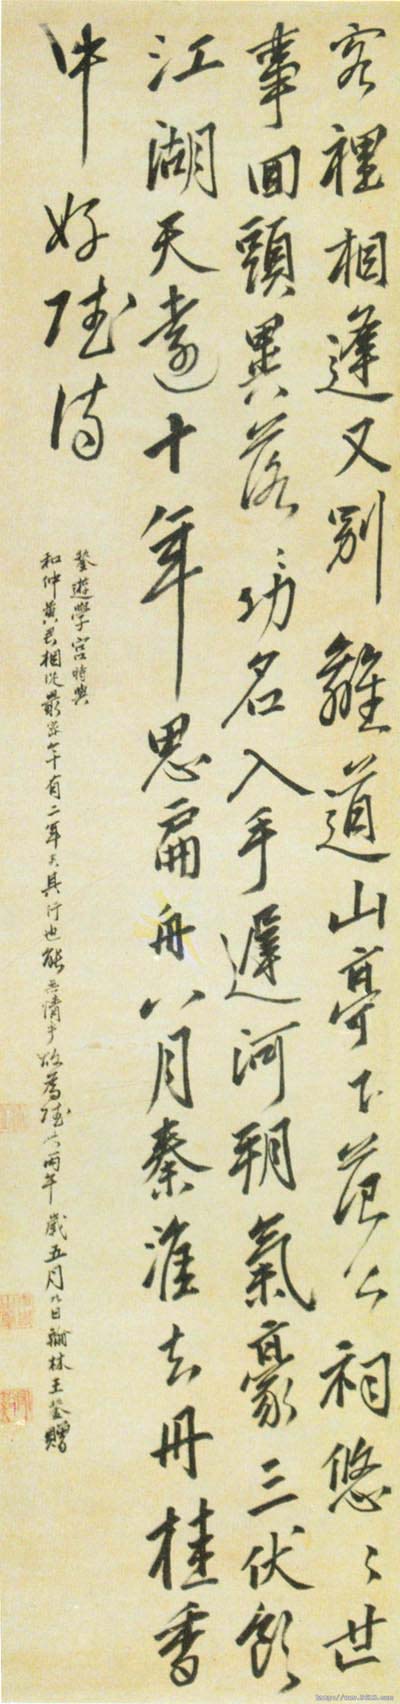 客裡相逢又別離道山亭下范公祠悠〻世
事回頭異落〻功名入手遲河朔氣豪三伏飲
江湖天遠十年思扁舟八月秦淮去丹桂香
中好賦詩
鏊遊學宮時與
和仲黃君相從最密今十有二年矣其行也能無情乎故為賦此丙午歲五月八日翰林王鏊贈